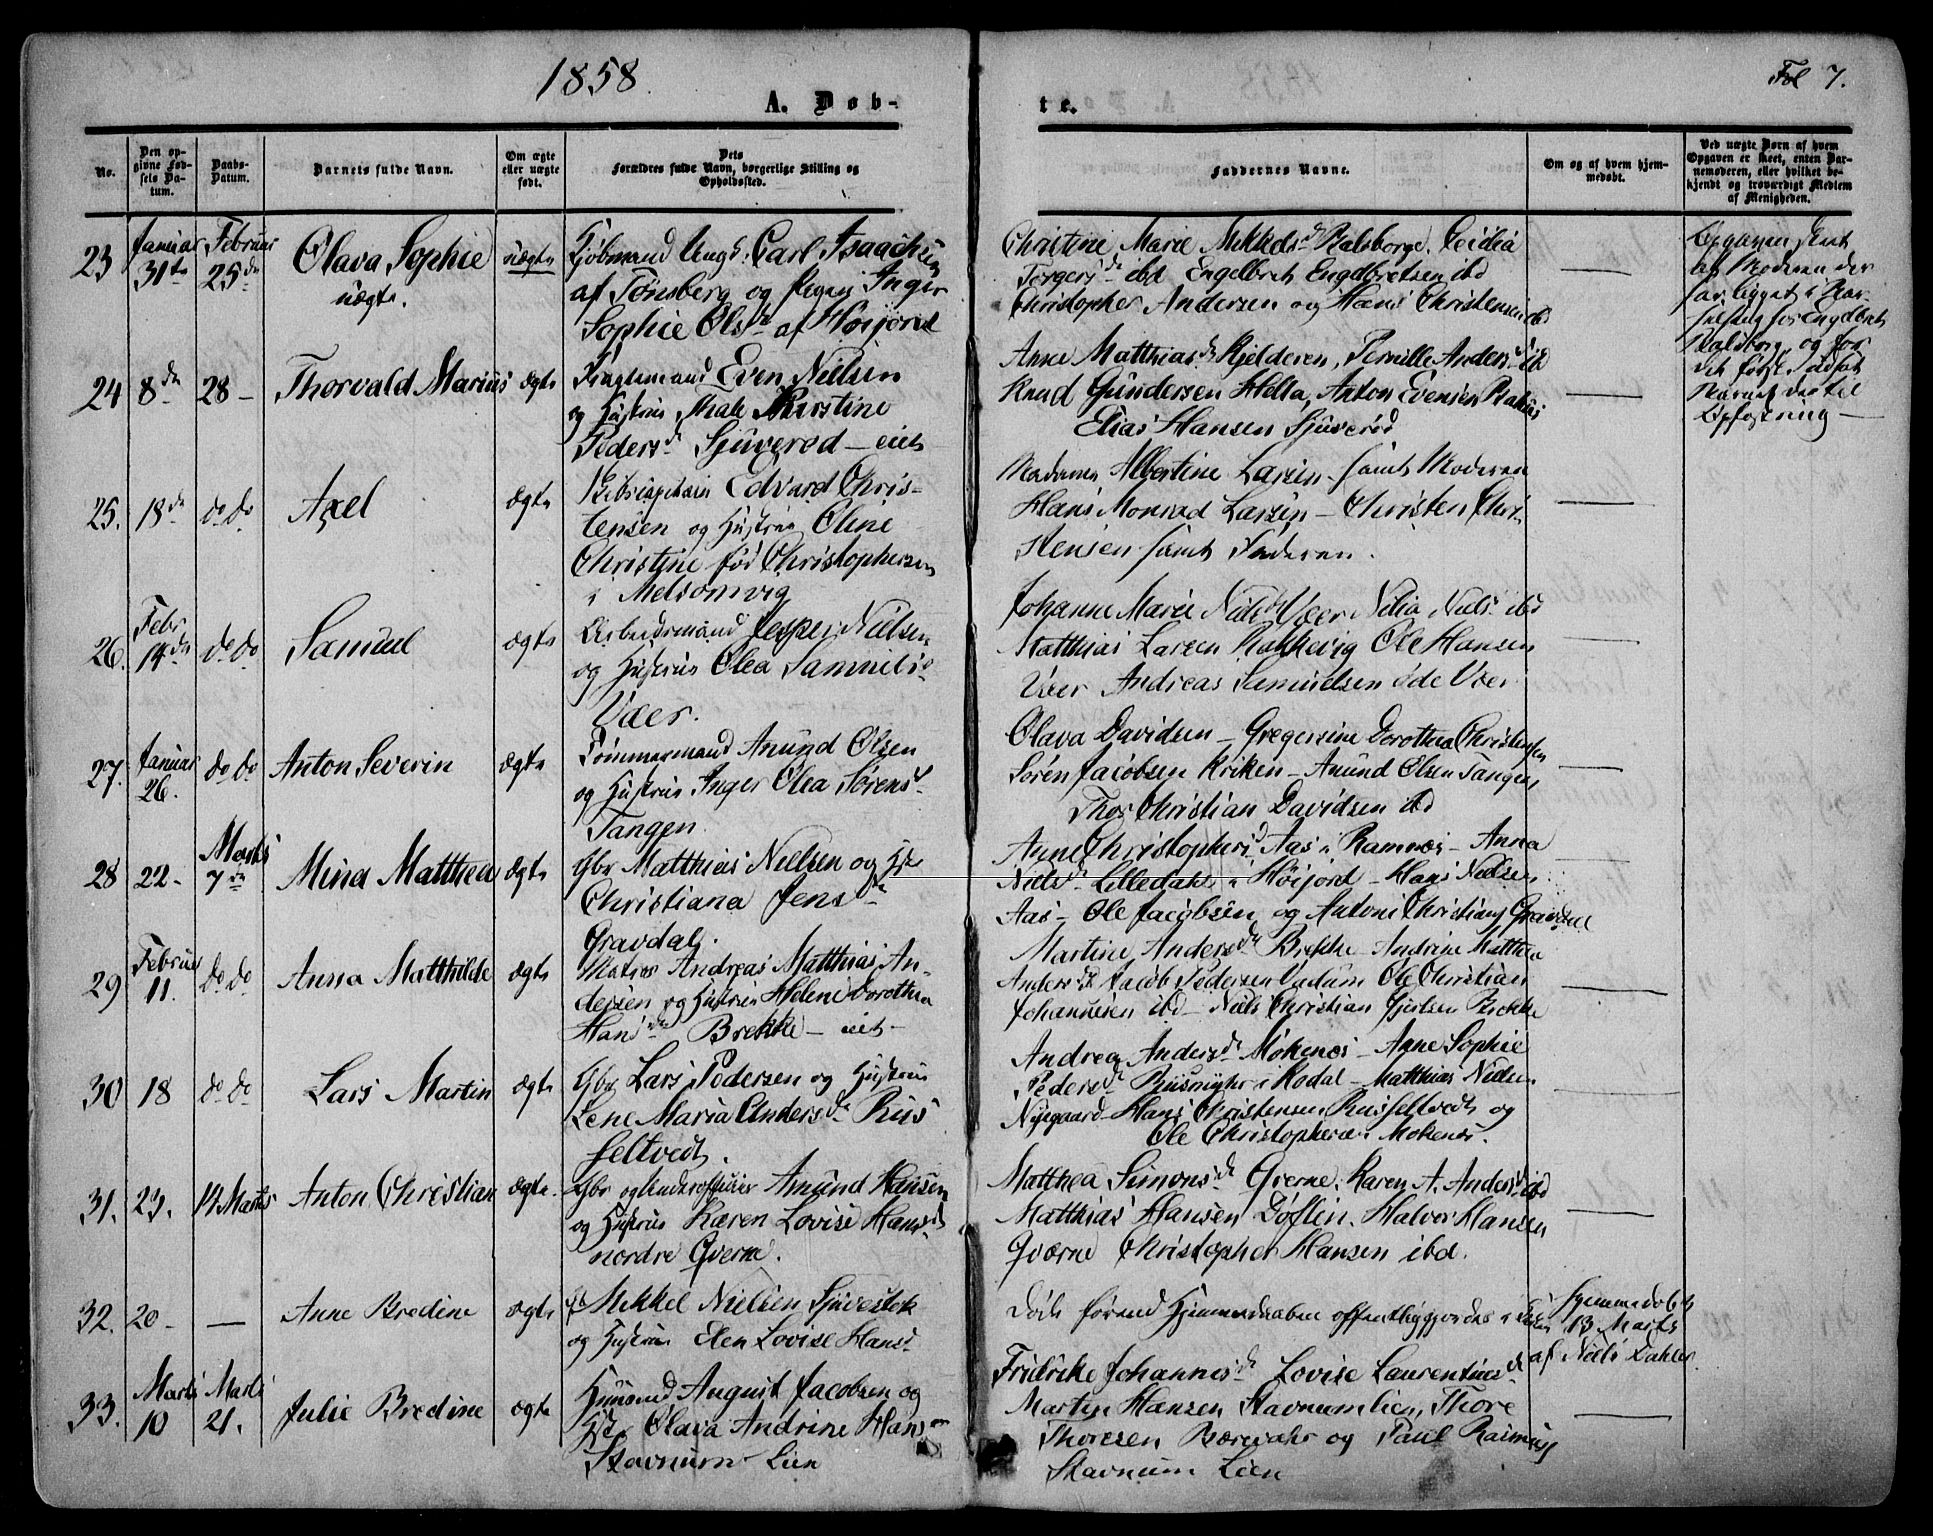 1858
A. Døb-
te.
Fol 7.
No.
Den op-
givne Fød-
sels Da-
tum.
Daabs-
Datum.
Barnets fulde Navn.
Om ægte
eller uægte
født.
Dets
Forældres fulde Navn, borgerlige Stilling og
Opholdssted.
Faddernes Navne.
Om og af hvem hjem-
medøbt.
Ved uægte Børn af hvem
Opgaven er skeet, enten Bar-
nemoderen, eller hvilket be-
kjendt og troværdigt Medlem
af Menigheden.
23 Januar 31te Februar 25de Olava Sophie uægte. uægte
Kjøbmand Ungk. Carl Isaachsen
af Tønsberg og Pigen Inger
Sophie Olsd af Høijord
Christine Marie Mikkelsd Ralsborge. Cecilia
Torgersd ibd Engelbret Engelbretsen ibd
Christopher Andersen og Hans Christensen ibd
Opgaven skeet
af Moderen der
har ligget i
for Engelbret
og for
det første
til
Opfostring
24 8de 28 Thorvald Marius ægte
Even Nielsen
og Hustrue Male Kirstine
Pedersd Sjuverød - eiet
Anne Matthiasd Kjelderen, Pernille Andersd ibd
Knud Gundersen Helta, Anton Evensen
Elias Hansen Sjuverød
25. 18de do do Axel ægte
Edvard Chris-
tensen og Hustrue Oline
Christine fød Christophersen
i Melsomvig
Madame Albertine Larsen - samt Moderen
Hans Monrad Larsen - Christen Chri-
stensen samt Faderen.
26. Febr 14de do do Samuel ægte
Arbeidsmand Jesper Nielsen
og Hustrue Olea Samuelsd
Vaer.
Johanne Marie Nielsd Vær Nilia Nielsd ibd
Matthias Larsen Rakkevig Ole Hansen
Vaer Andreas Samuelsen øde Vaer
27. Januar 26. do do Anton Severin ægte
Tømmermand Anund Olsen
og Hustrue Inger Olea Sørensd
Tangen
Olava Davidsen - Gregersine Dorothea Christensen
Søren Jacobsen Kriken - Anund Olsen Tangen
Thor Christian Davidsen ibd
28 22- Marts 7de Mina Matthea ægte
Gbr Matthias Nielsen og Hst
Christiana Jensdtr
Gravdal.
Anne Christophersd Aas i Ramnæs - Anna
Nielsd Lilledahl i Høijord - Hans Nielsen
Aas - Ole Jacobsen og Anton Christians Gravdal
29 Februar 11. do do Anna Matthilde ægte
Matros Andreas Matthias An-
dersen og Hustrue Helene Dorothea
Hansdtr Brekke - eiet -
Martine Andersd Brekke - Andrine Matthea
Andersd Jacob Pedersen Vadum Ole Christian
Johannesen ibd - Niels Christian Brekke
30 18 do do Lars Martin ægte
Gbr Lars Pedersen og Hustrue
Lene Maria Andersd Rus-
feltvedt.
Andrea Andersd Møkenes - Anne Sophie
Pedersd i Kodal - Matthias Nielsen
Nyegaard - Hans Christensen Rusfeltvedt og
Ole Christophersen Møkenes.
31. 23. 14 Marts Anton Christian ægte.
Gbr og Underofficier Amund Hansen
og Hustrue Karen Lovise Hansd
nordre Qverne.
Matthea Simonsd Qverne. Karen A. Andersd ibd
Matthias Hansen Døflen. Halvor Hansen
Qværne Christopher Hansen ibd.
32. 20- Anne Bredine ægte
Mikkel Nielsen Sjuvestok
og Hustrue Elen Lovise Hansd
Døde førend Hjemmedaaben offentliggjordes i Kirken
Hjemmedøbt
13 Marts
af Niels Dahler.
33. Marts 10 Marts 21. Julie Bredine ægte
Huusmand August Jacobsen og
Hst. Olava Andrine Hans
Stavnum Lien
Fridrike Johannesd Lovise Laurentiusd
Martin Hansen Stavnumlien, Thore
Thoresen og Paul Rasmus
Stavnum Lien